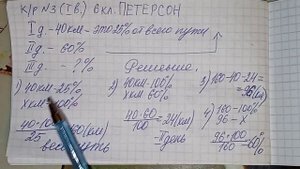 К/р №3 (I в.) 8 кл. ПЕТЕРСОН
I д. - 40 км - это 25% от всего пути
II д. - 60%
III д. - ?%
Решение.
1) 40 км - 25%
х км - 100%
40·100/25 = 160 (км)
весь путь
2) 40 км - 100%
х км - 60%
40·60/100 = 24 (км)
- II день
3) 160-40-24=
= 96 (км)
4) 160 - 100%
96 - х
96·100/160 = 60%